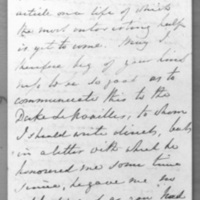 article on a life of which
the most interesting half
is yet to come. May I
therefore beg of your kind
ness to be so just as to
communicate this to the
Duke de Noailles, to whom
I should write directly, but
in a letter with which he
honoured me some time
since, he gave me no